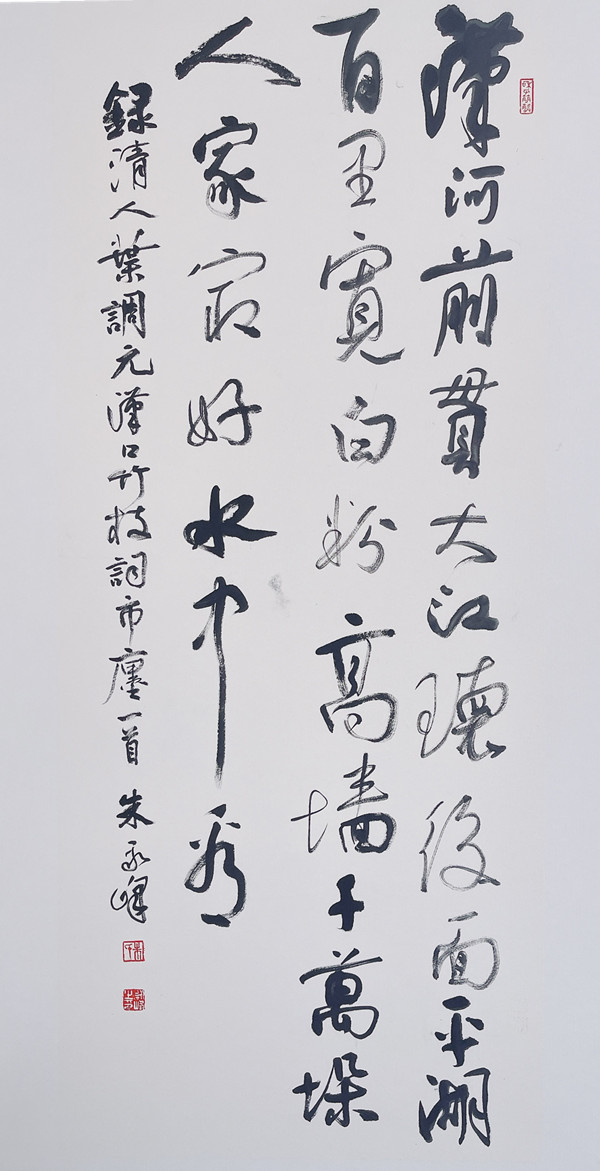 漢河前貫大江環後面平湖
百里寬白粉高墻千萬垛
人家冣好水中看
録清人葉調元漢口竹枝詞市廛一首 朱永峰